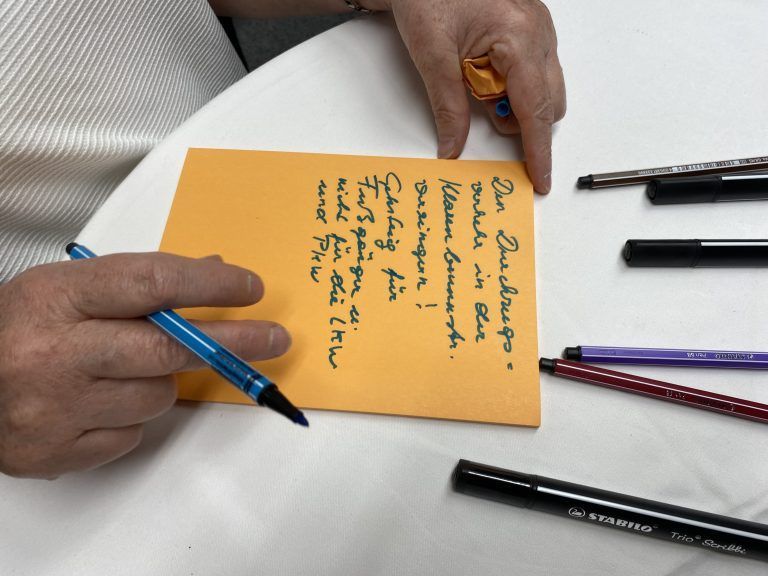 Den Durchzugs=
verkehr in der
verringern!
Gehsteig für
Fußgänger u.
nicht für die LKW
und PKW
STABILO Trio® Scribbi